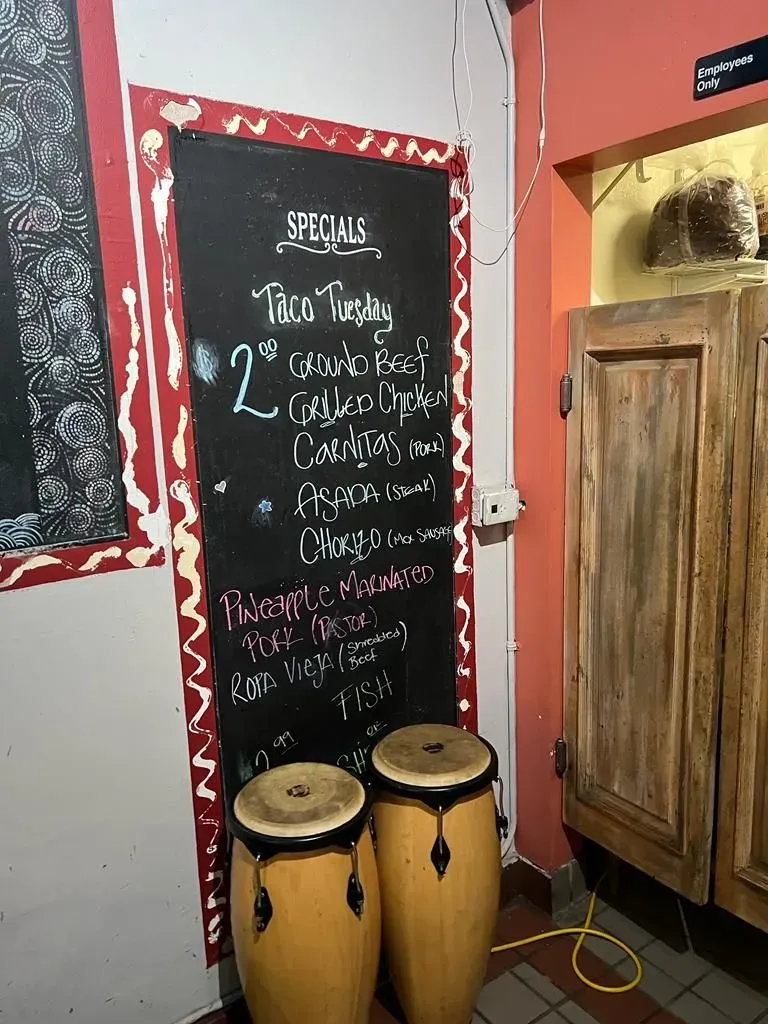 Employees
Only
SPECIALS
Taco Tuesday
2.00 GROUND BEEF
GRILLED CHICKEN
CARNITAS (PORK)
ASADA (STEAK)
CHORIZO (MEX SAUSAGE
PINEAPPLE MARINATED
PORK (PASTOR)
ROPA VIEJA (Shredded
Beef)
FISH
2.99